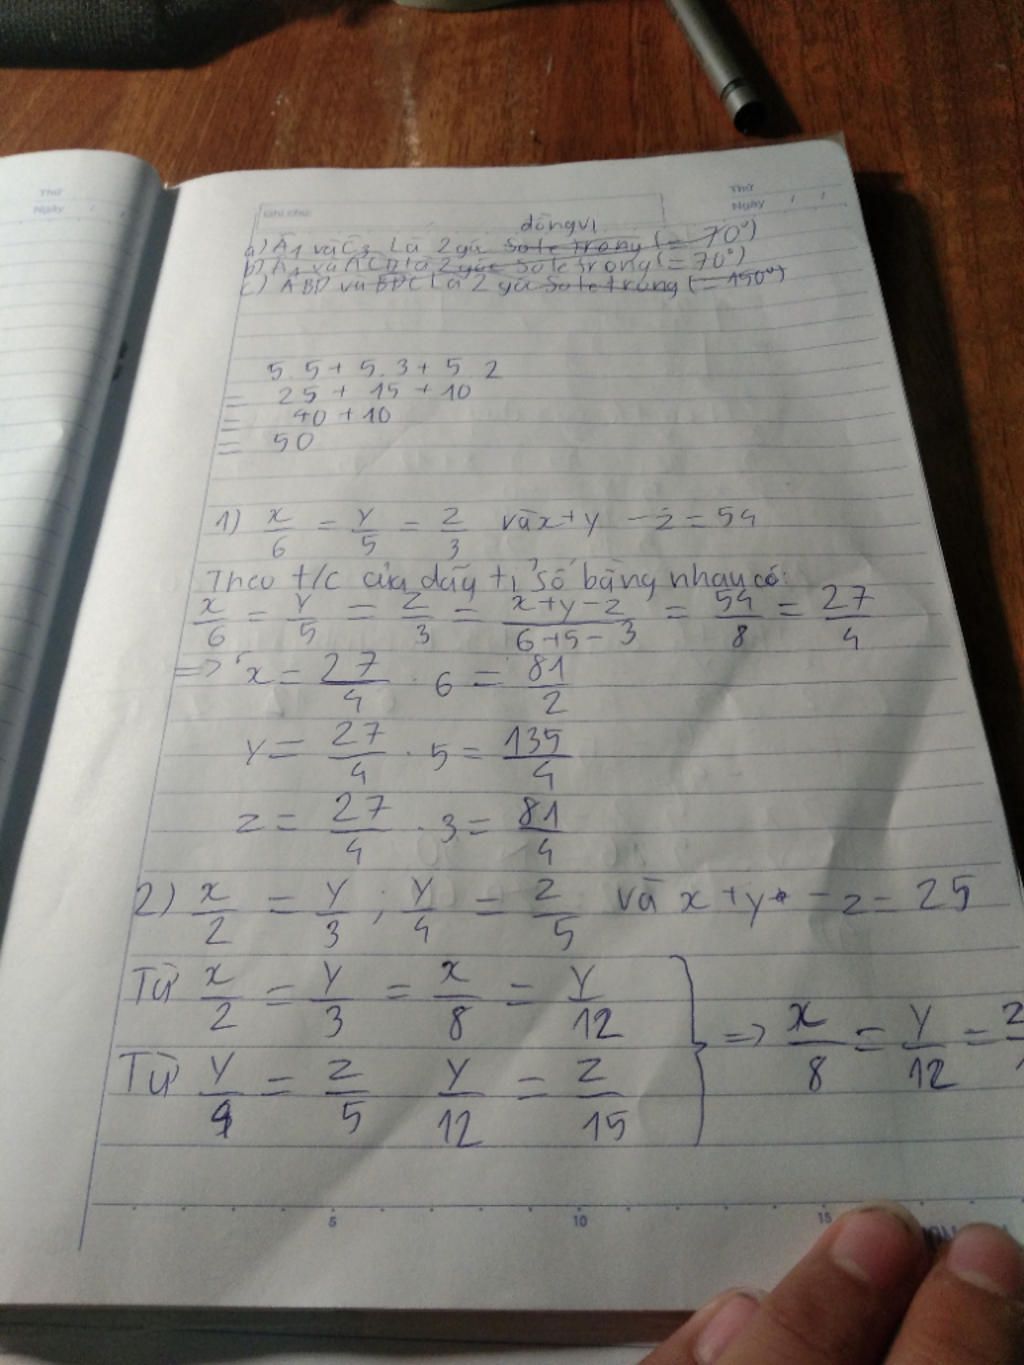 Thứ
Ngày
Ghi chú:
Thứ
Ngày
đồng vị
a) A1 và C3 Là 2 góc So le trong (= 70°)
b) A1 và ACD là 2 góc So le trong (= 70°)
c) ABD và BDC Là 2 góc So le trong (= 150°)
5.5 + 5.3 + 5.2
= 25 + 15 + 10
= 40 + 10
= 50
1) x/6 = y/5 = z/3 và x+y - z = 54
Theo t/c của dãy tỉ số bằng nhau có:
x/6 = y/5 = z/3 = (x+y-z)/(6+5-3) = 54/8 = 27/4
=> x = 27/4 . 6 = 81/2
y = 27/4 . 5 = 135/4
z = 27/4 . 3 = 81/4
2) x/2 = y/3 ; y/4 = z/5 và x+y - z = 25
Từ x/2 = y/3 = x/8 = y/12
=> x/8 = y/12 =
Từ y/4 = z/5 y/12 = z/15
5 10 15